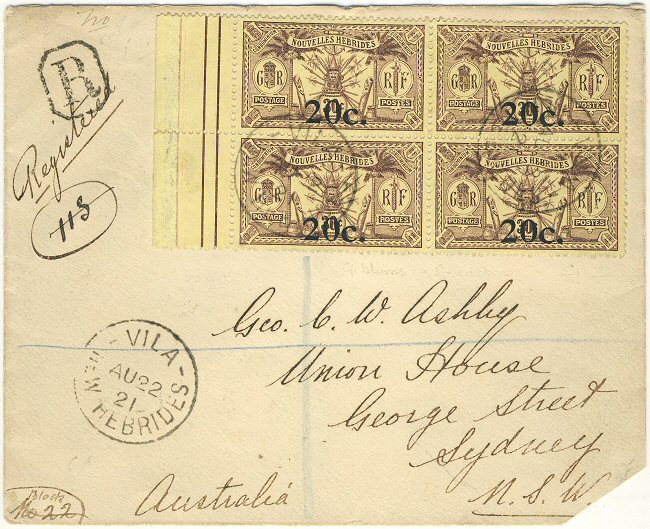 No
R
Registered
113
NOUVELLES HEBRIDES
G R
R F
POSTAGE
POSTES
20c.
NOUVELLES HEBRIDES
G R
R F
POSTAGE
POSTES
20c.
NOUVELLES HEBRIDES
G R
R F
POSTAGE
POSTES
20c.
NOUVELLES HEBRIDES
G R
R F
POSTAGE
POSTES
20c.
Geo. C. W. Ashby
Union House
George Street
Sydney
N. S. W.
Australia
VILA
AU 22
21
NEW HEBRIDES
Block
No 22